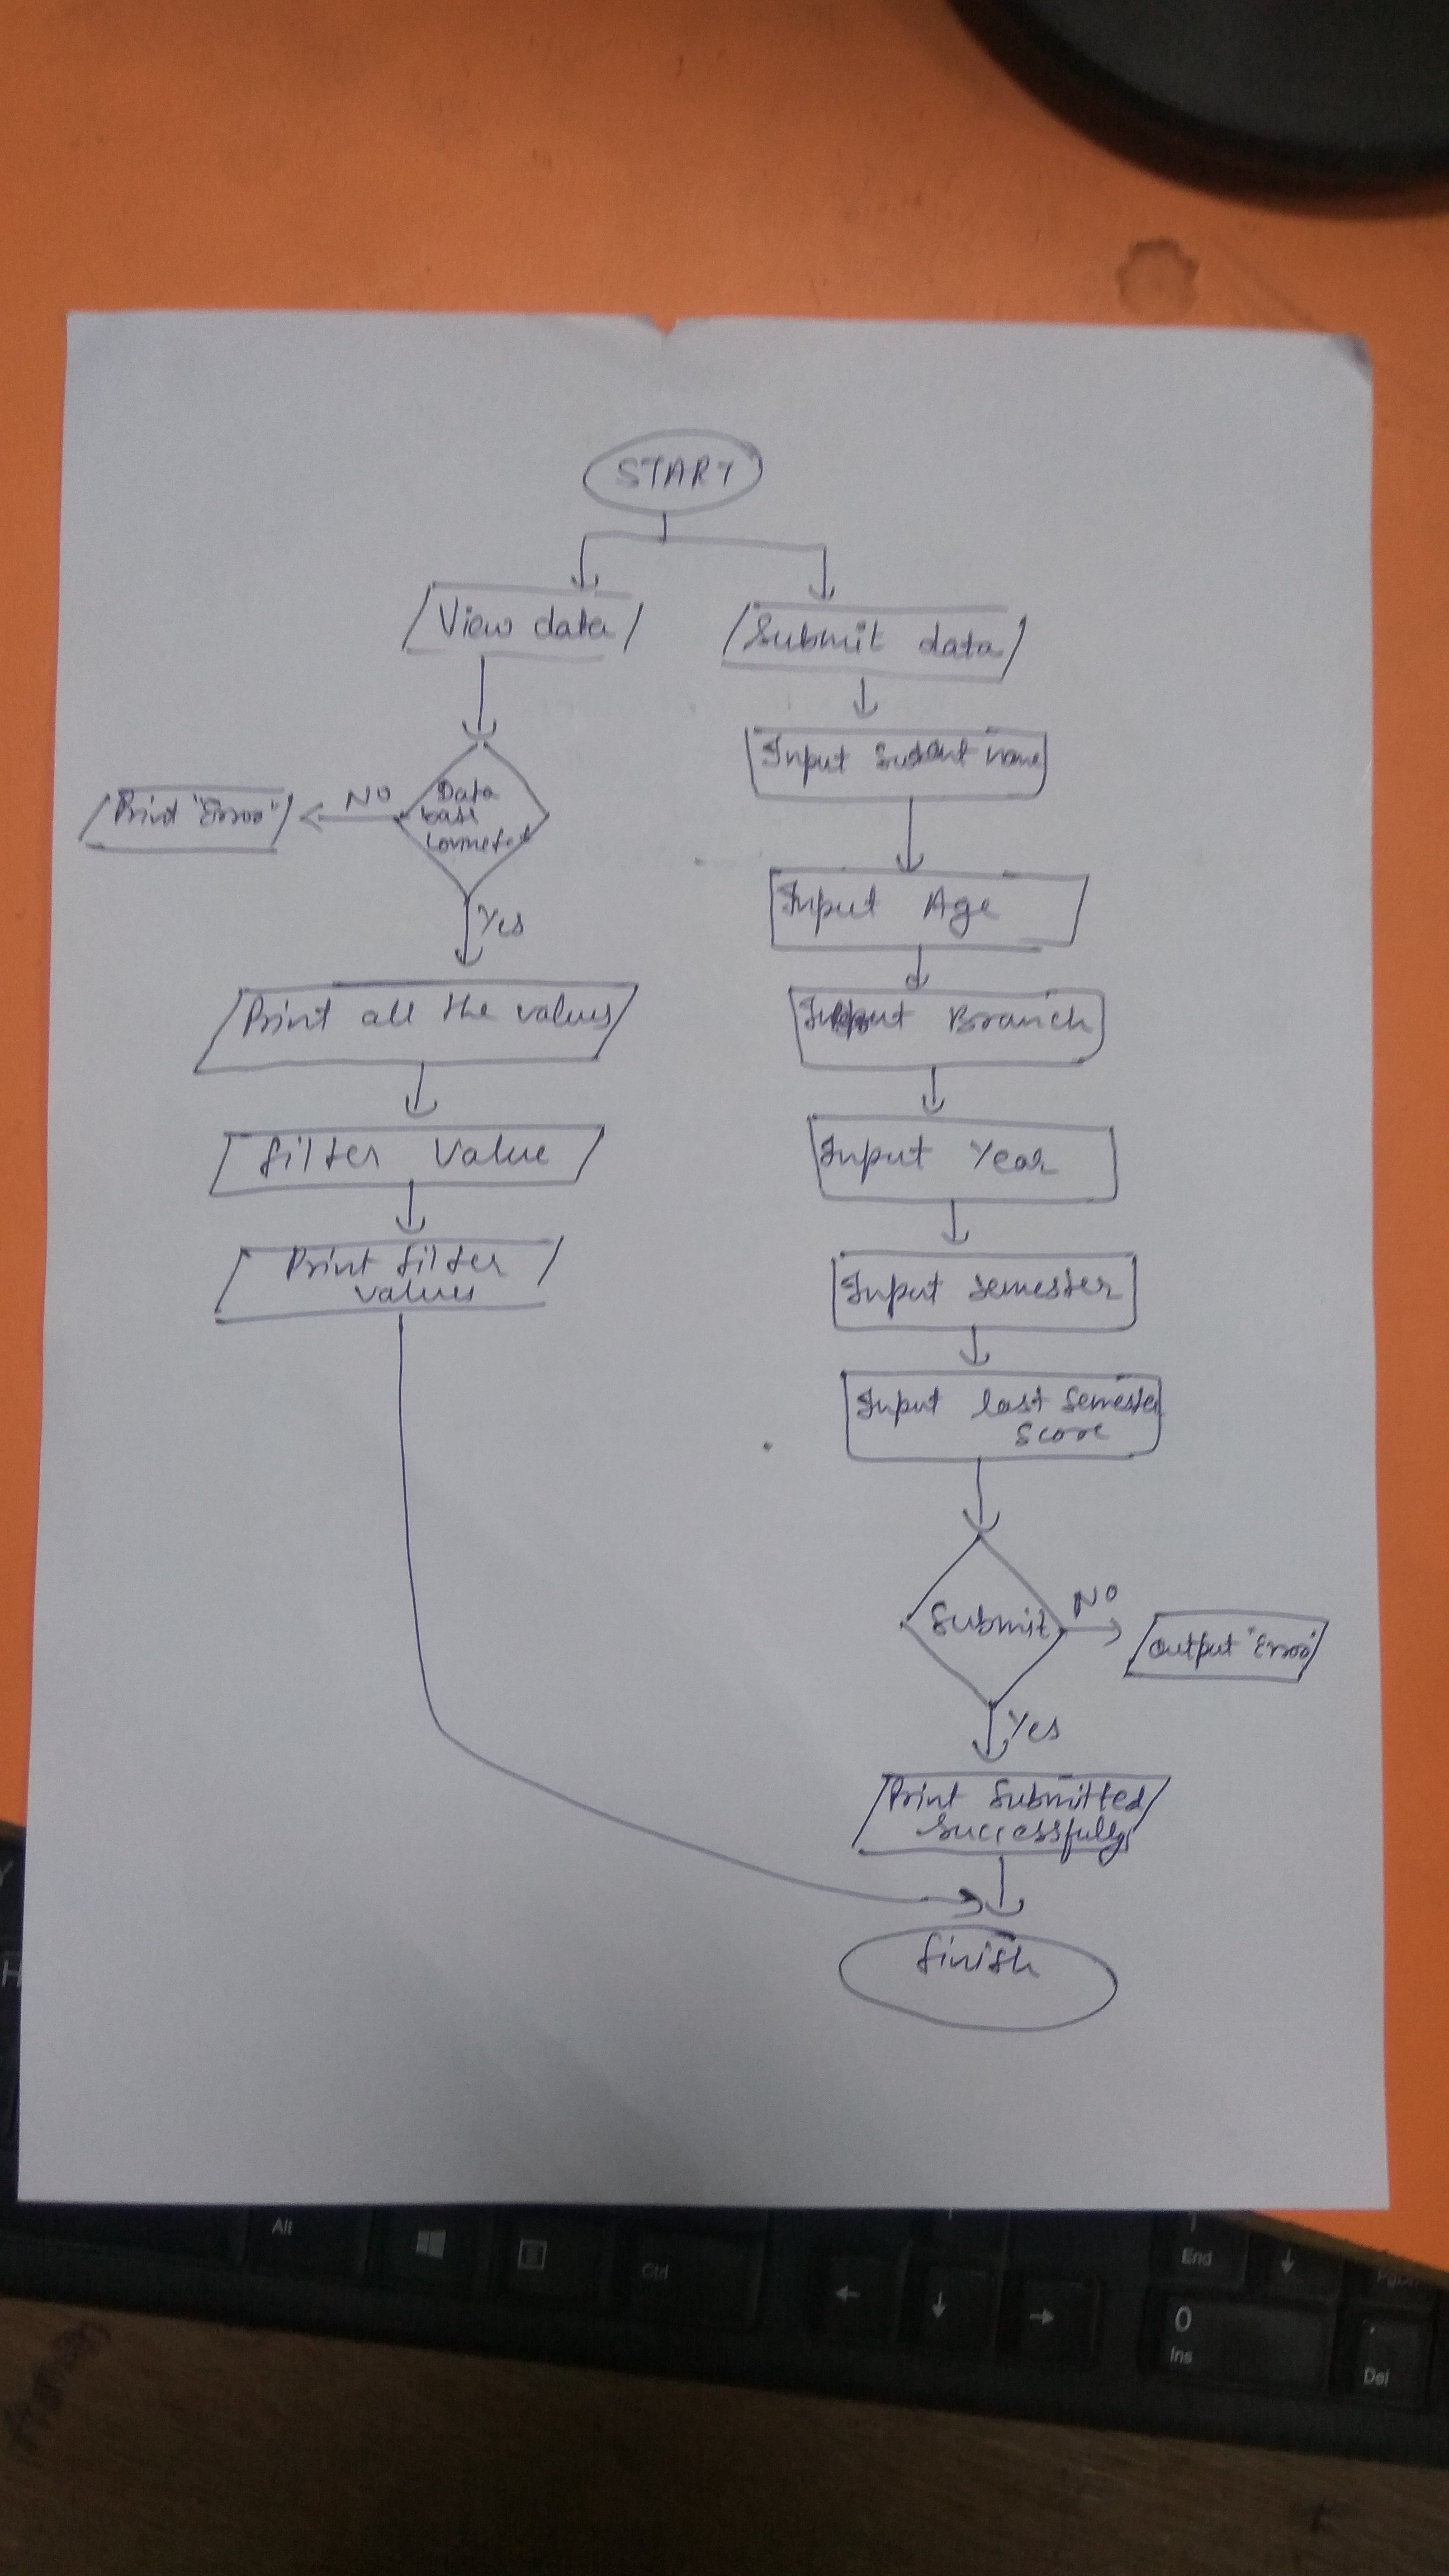 START
View data
Submit data
Input Sudent name
Print "Error"
NO
Data
base
Connected
Yes
Input Age
Print all the values
Input Branch
filter Value
Input Year
Print filter
values
Input Semester
Input last Semester
Score
Submit
NO
Output "Error"
Yes
Print Submitted
Successfully
finish
Alt
Ctrl
End
PgDn
0
Ins
.
Del
Y
H